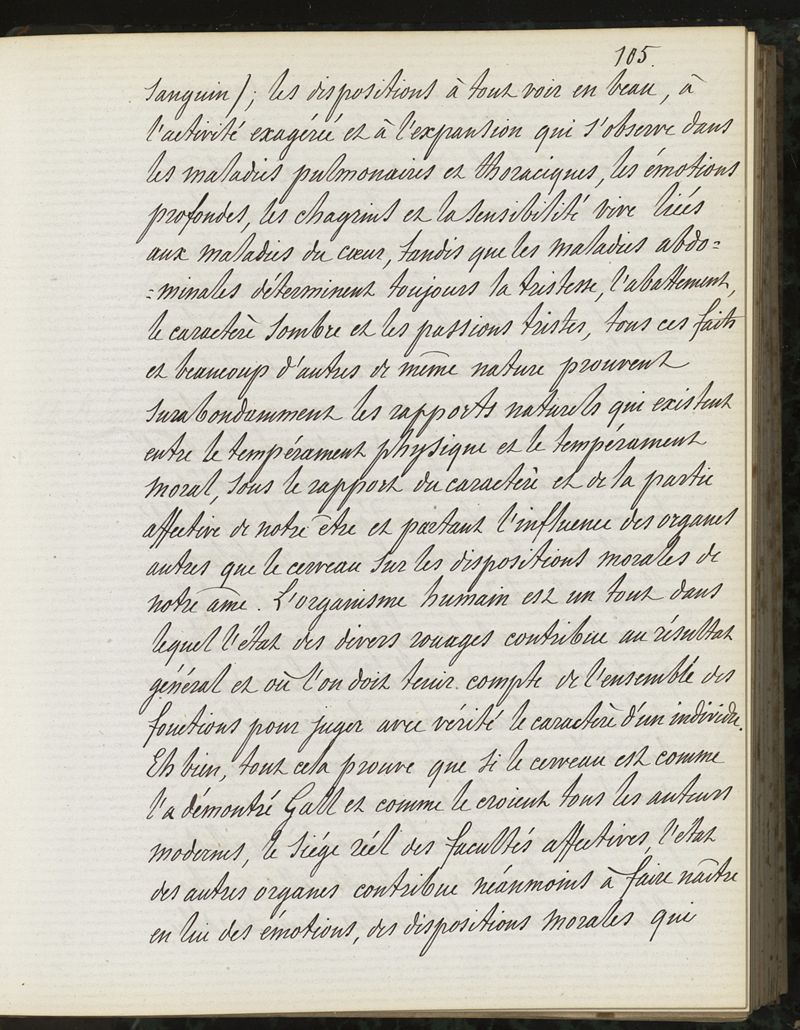 105.
Sanguin); les dispositions à tout voir en beau, à
l'activité exagérée et à l'expansion qui s'observe dans
les maladies pulmonaires et thoraciques, les émotions
profondes, les chagrins et la sensibilité vive liés
aux maladies du cœur, tandis que les maladies abdo=
=minales déterminent toujours la tristesse, l'abattement,
le caractère sombre et les passions tristes, tous ces faits
et beaucoup d'autres de même nature prouvent
surabondamment les rapports naturels qui existent
entre le tempérament physique et le tempérament
moral, sous le rapport du caractère et de la partie
affective de notre être et partant l'influence des organes
autres que le cerveau sur les dispositions morales de
notre âme. L'organisme humain est un tout dans
lequel l'état des divers rouages contribue au résultat
général et où l'on doit tenir compte de l'ensemble des
fonctions pour juger avec vérité le caractère d'un individu.
Eh bien, tout cela prouve que si le cerveau est comme
l'a démontré Gall et comme le croient tous les auteurs
modernes, le siége réel des facultés affectives, l'état
des autres organes contribue néanmoins à faire naître
en lui des émotions, des dispositions morales qui